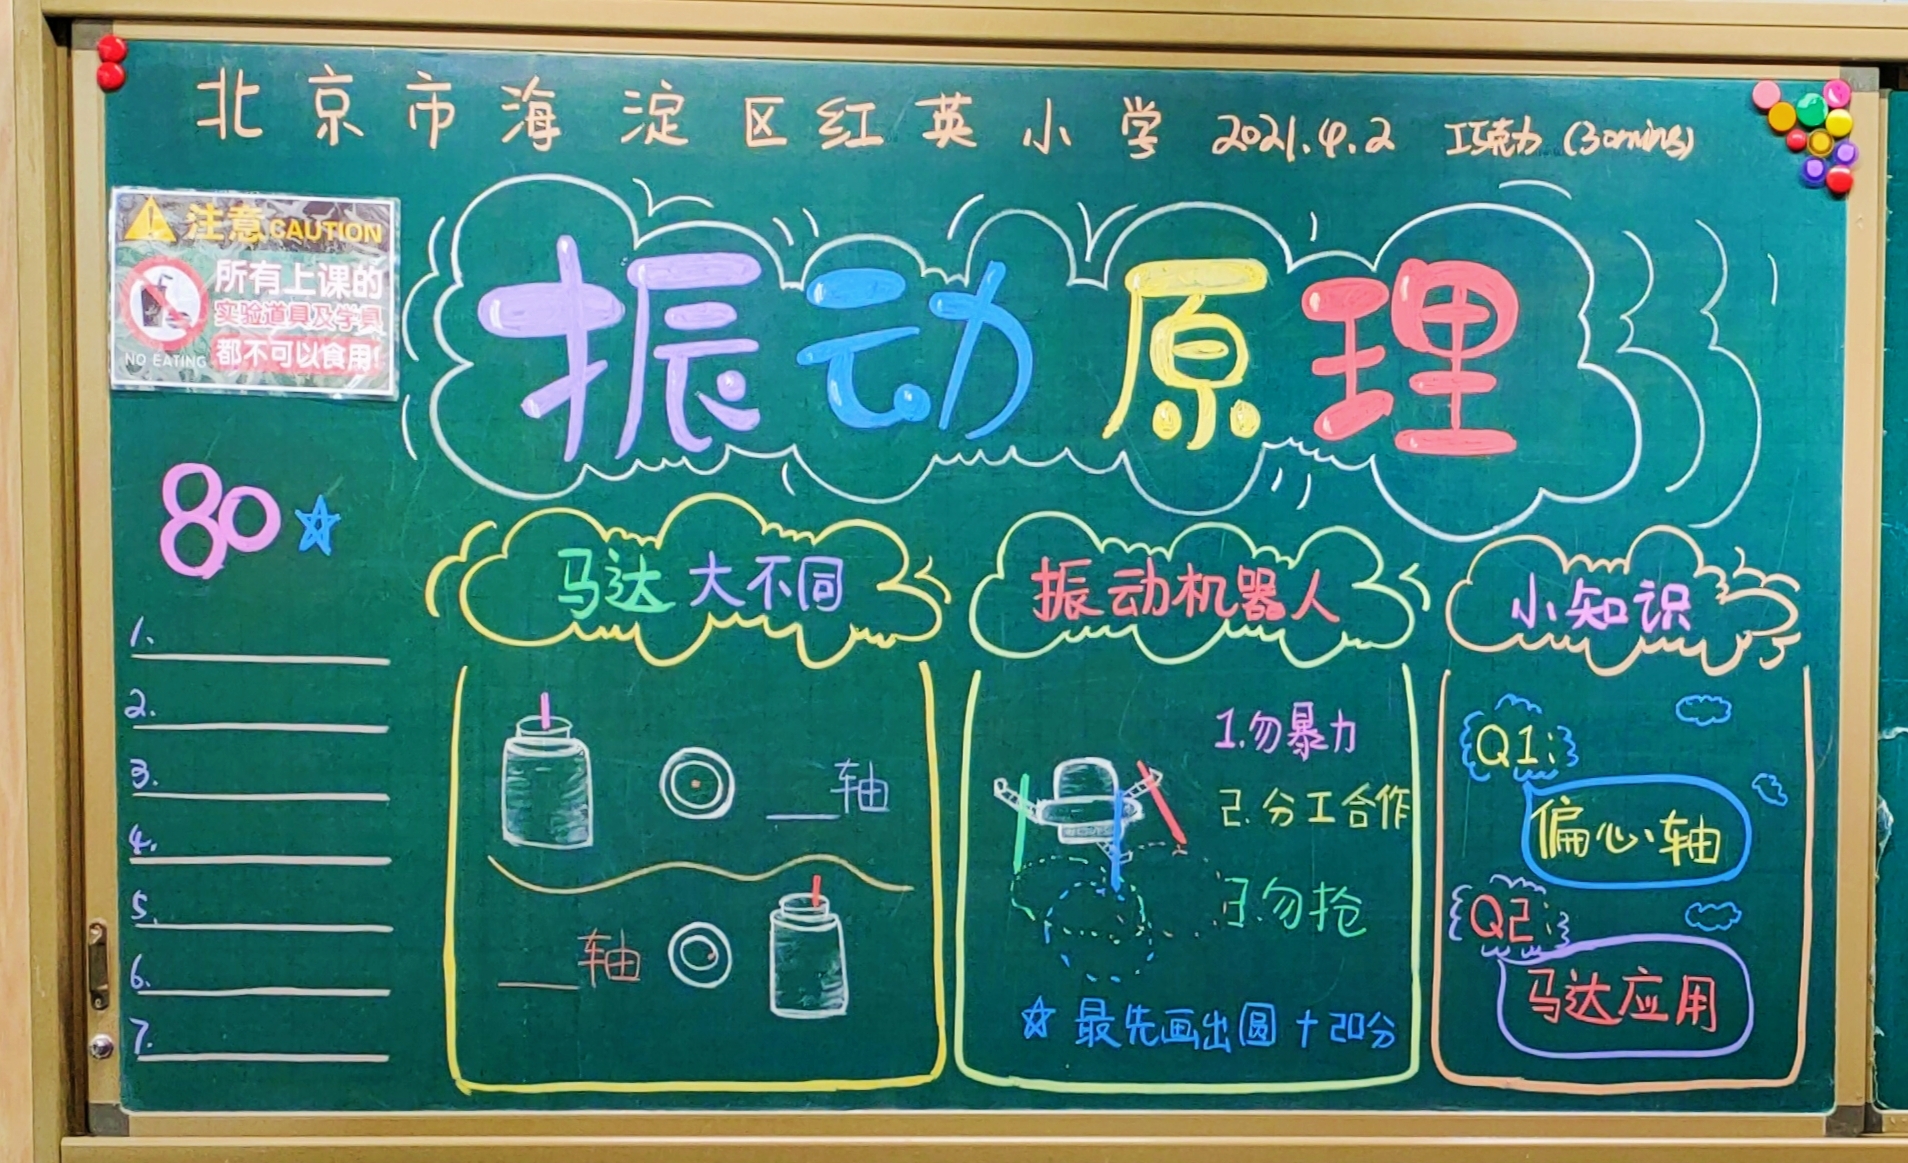 北京市海淀区红英小学 2021.4.2 巧克力 (30mins)
注意 CAUTION
所有上课的
实验道具及学具
都不可以食用!
NO EATING
振动原理
80
1.
2.
3.
4.
5.
6.
7.
马达大不同
___轴
___轴
振动机器人
1.勿暴力
2.分工合作
3.勿抢
☆ 最先画出圆+20分
小知识
Q1:
偏心轴
Q2:
马达应用